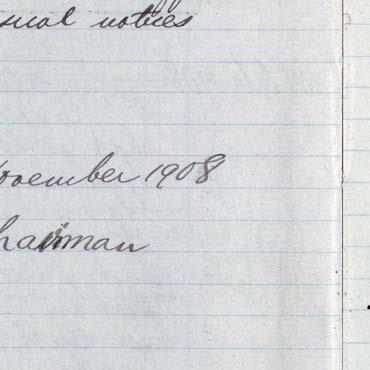 sual notices
ovember 1908
hairman